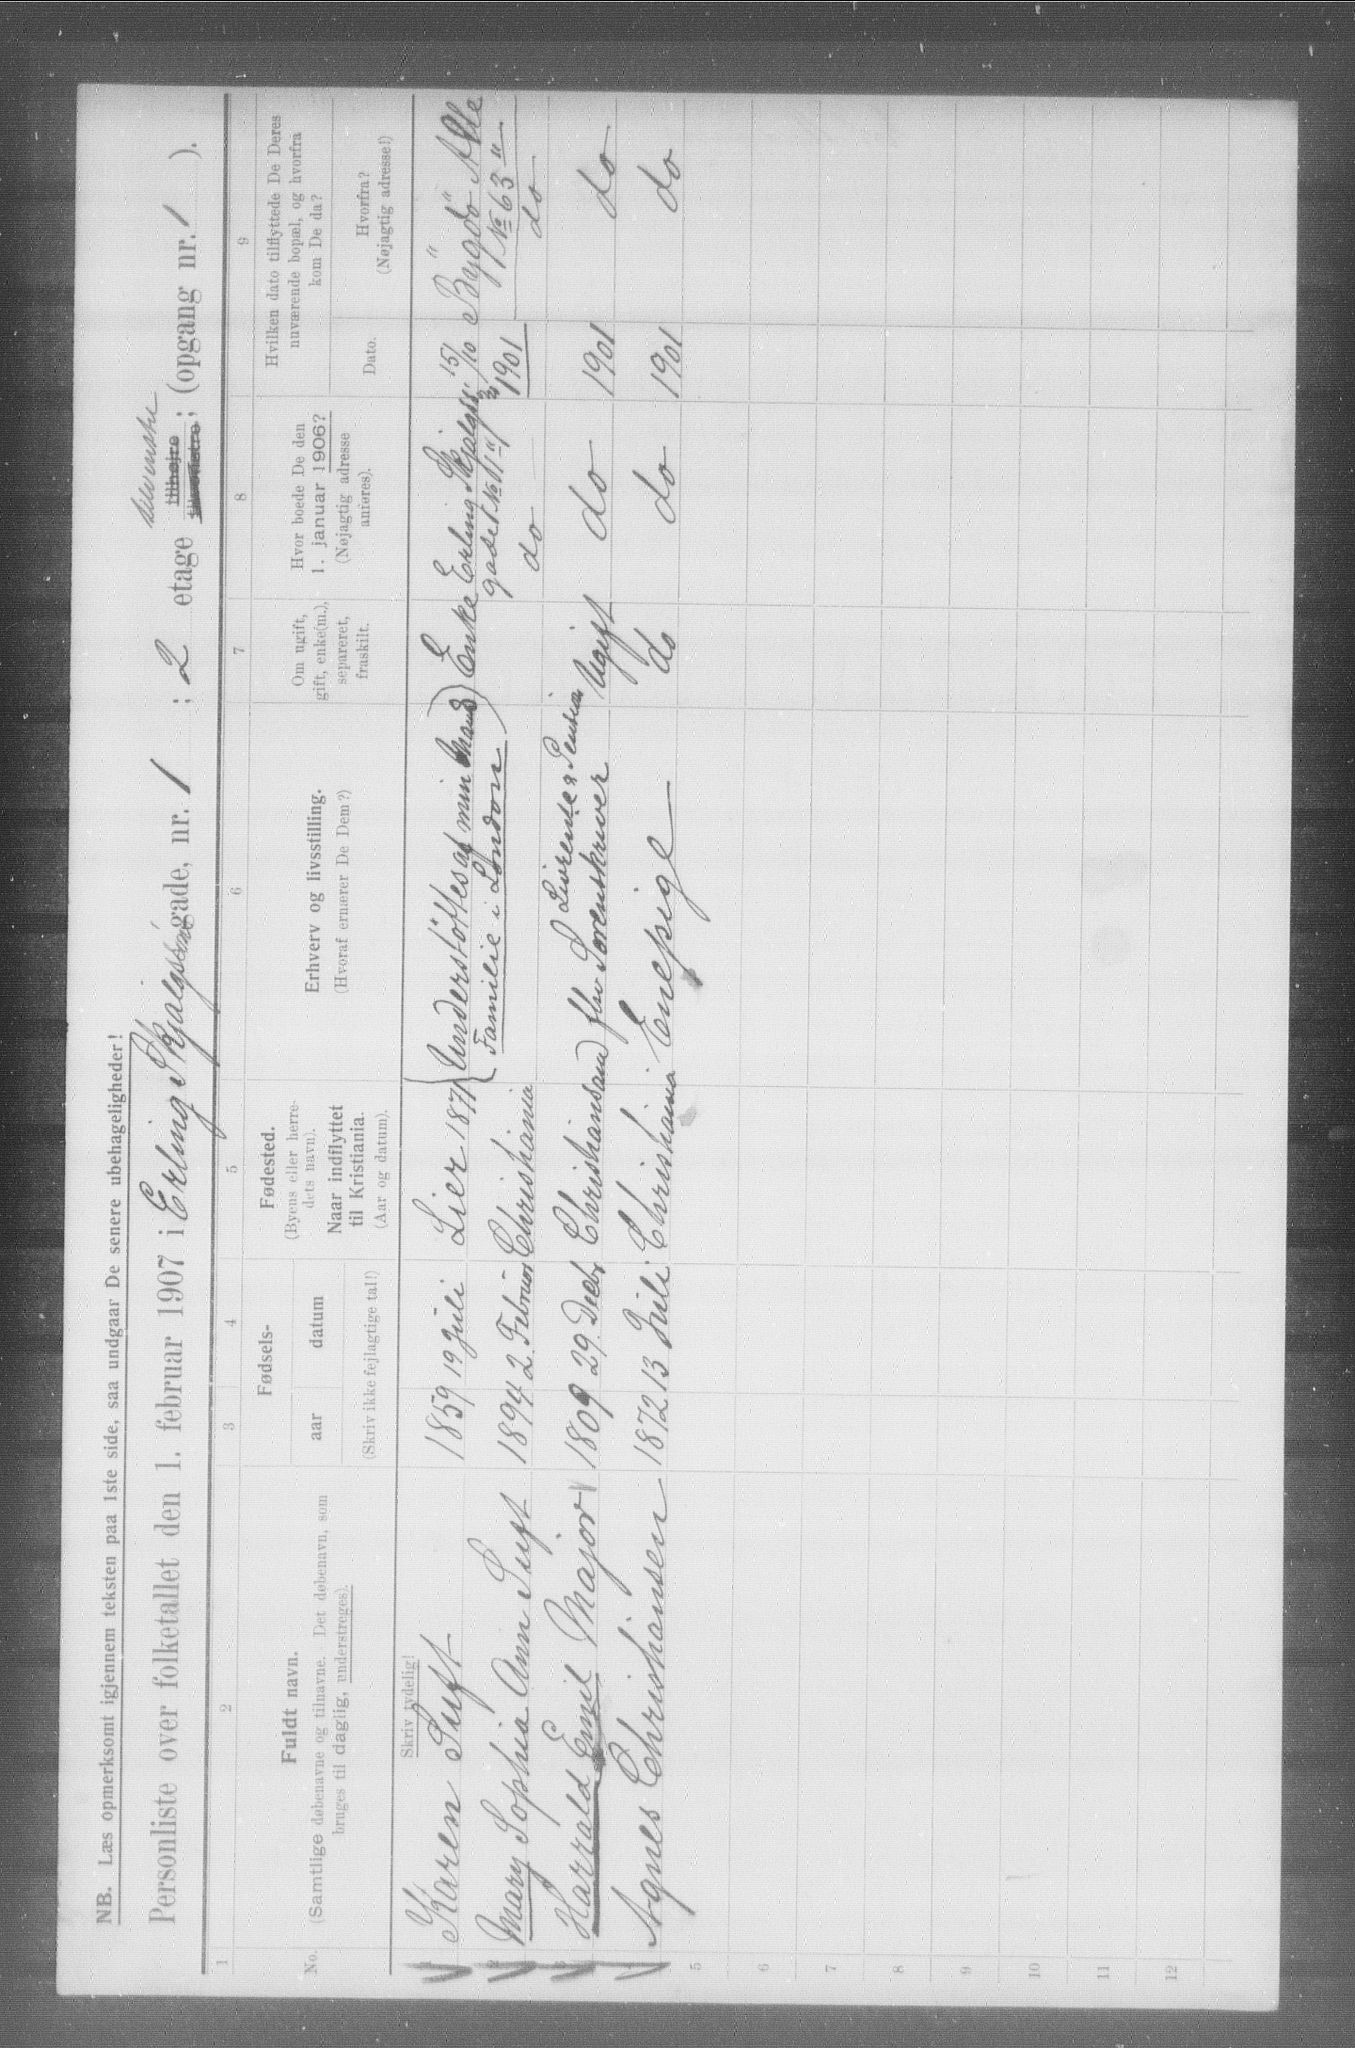 NB. Læs opmerksomt igjennem teksten paa 1ste side, saa undgaar De senere ubehageligheder!
Personliste over folketallet den 1. februar 1907 i Erling Skjalgsöns gade, nr. 1 ; 2 etage tilvenstre tilhøjre tilvenstre ; (opgang nr. 1 ).
1 2 3 4 5 6 7 8 9
No.
Fuldt navn.
(Samtlige døbenavne og tilnavne. Det døbenavn, som
bruges til daglig, understreges).
Fødsels-
aar datum
(Skriv ikke fejlagtige tal!)
Fødested.
(Byens eller herre-
dets navn).
Naar indflyttet
til Kristiania.
(Aar og datum).
Erhverv og livsstilling.
(Hvoraf ernærer De Dem?)
Om ugift,
gift, enke(m.),
separeret,
fraskilt.
Hvor boede De den
1. januar 1906?
(Nøjagtig adresse
anføres).
Hvilken dato tilflyttede De Deres
nuværende bopæl, og hvorfra
kom De da?
Dato.
Hvorfra?
(Nøjagtig adresse!)
Skriv tydelig!
1 Karen Tuft 1859 19 Juli Lier 1871 Understöttes af min Mands Familie i London Enke Erling Skjalgss. gade No 1 15/10 1901 Bygdö Alle No 63
2 Mary Sophia Ann Tuft 1894 2. Februar Christiania do do
3 Harrald Emil Major 1809 29. Decbr Christiansand Livrente & Pension fhv Sorenskriver Ugift do 1901 do
4 Agnes Christiansen 1872 13 Juli Christiania Enepige do do 1901 do
5
6
7
8
9
10
11
12